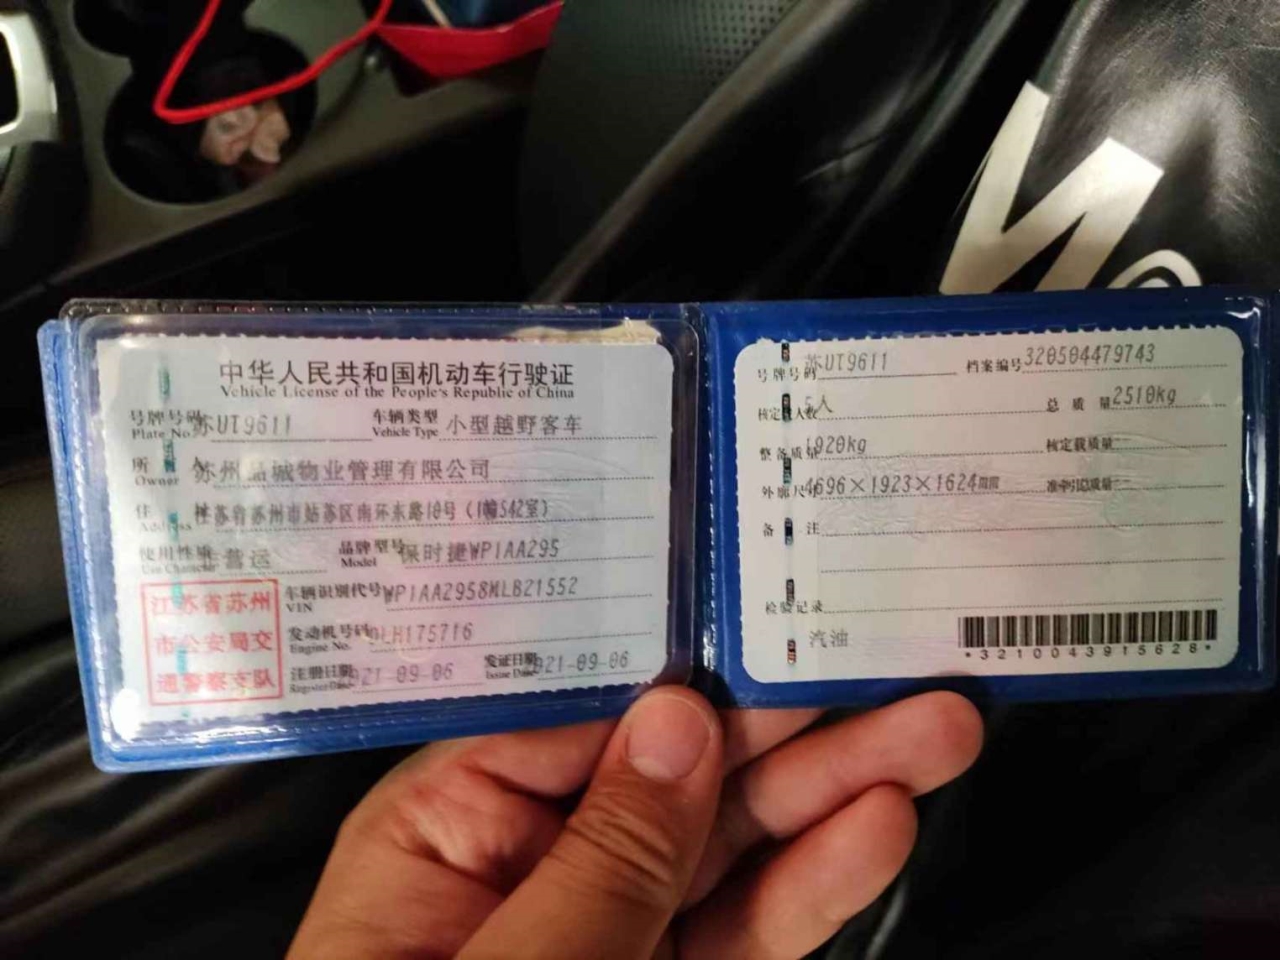 中华人民共和国机动车行驶证
Vehicle License of the People's Republic of China
号牌号码 苏UT9611 车辆类型 小型越野客车
Plate No. Vehicle Type
所 苏州品诚物业管理有限公司
Owner
住 江苏省苏州市姑苏区南环东路10号(1幢542室)
Address
使用性质 营运 品牌型号 保时捷WP1AA295
Use Character Model
车辆识别代号 WP1AA2958MLB21552
VIN
发动机号码 DLH175716
Engine No.
注册日期 021-09-06 发证日期 021-09-06
Register Date Issue Date
江苏省苏州
市公安局交
通警察支队
号牌号码 苏UT9611 档案编号 320504479743
核定载人数 5人 总质量 2510kg
整备质量 1920kg 核定载质量 --
外廓尺寸 4696×1923×1624mm 准牵引总质量 --
备注
检验记录
汽油
*3210043915628*